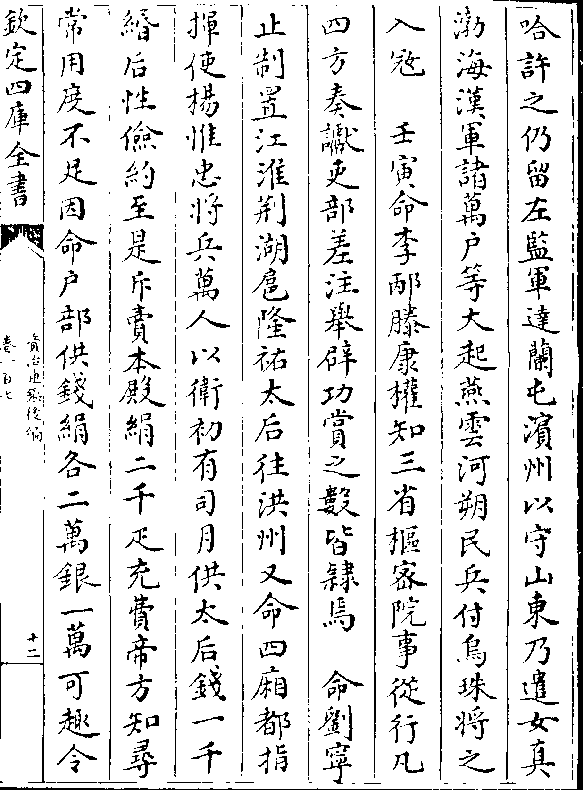 哈許之仍留左監軍達蘭屯濱州以守山東乃遣女真
渤海漢軍諸萬户等大起燕雲河朔民兵付烏珠將之
入𡨥　壬寅命李邴滕康權知三省樞宻院事從行凡
四方奏讞吏部差注舉辟功賞之數皆隸焉　命劉寧
止制置江淮荆湖扈隆祐太后往洪州又命四廂都指
揮使楊惟忠將兵萬人以衛初有司月供太后錢一千
緡后性儉約至是斥賣本殿絹二千疋充費帝方知尋
常用度不足因命户部供錢絹各二萬銀一萬可趣令
欽定四庫全書
資治通鑑後編
卷一百七
十二